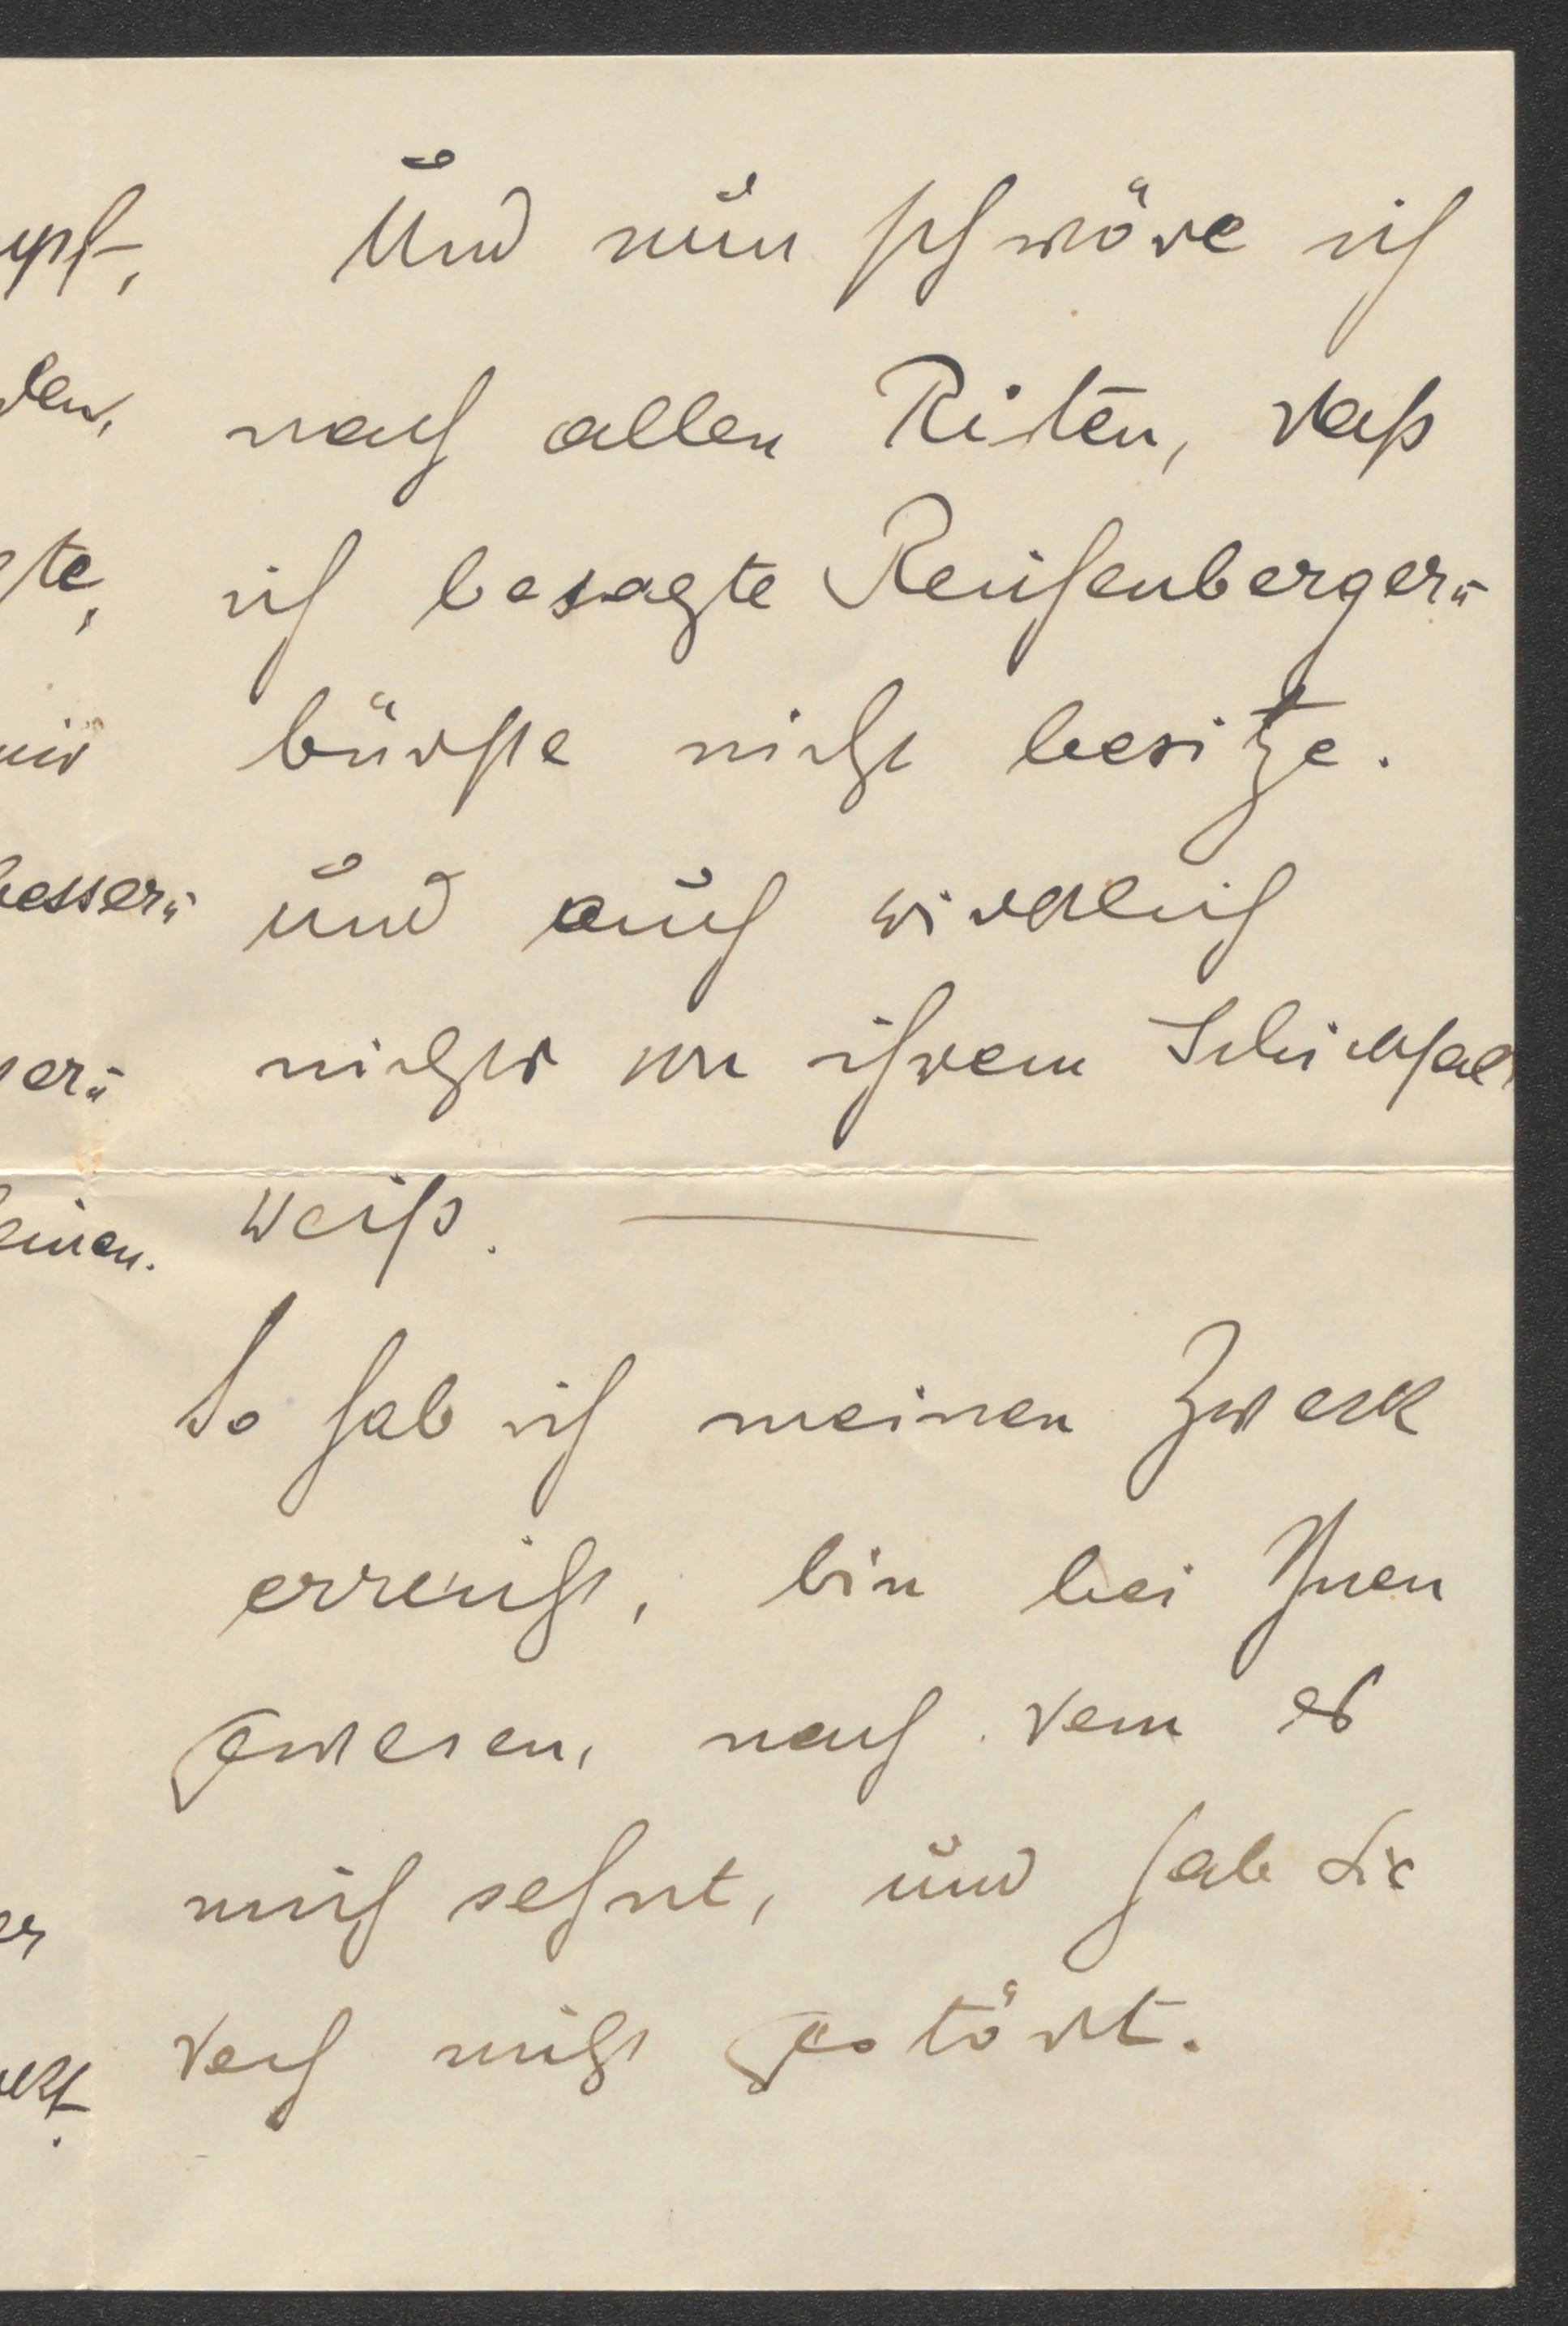 Und nun schwöre ich
nach allen Riten, daß
ich besagte Reichenberger-
bürste nicht besitze.
und auch wirklich
nichts von ihrem Schicksal
weiß.
So hab ich meinen Zweck
erreicht, bin bei Ihnen
gewesen, nach dem es
mich sehnt, und hab Sie
doch nicht gestört.